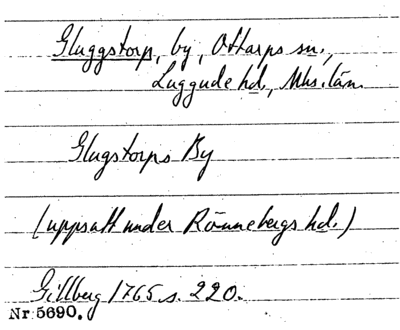 Gluggstorp, by, Ottarps sn.,
Luggude hd., Mhs. län.
Glugstorps By
(uppsatt under Rönnebergs hd.)
Gillberg 1765 s. 220.
Nr 5690.